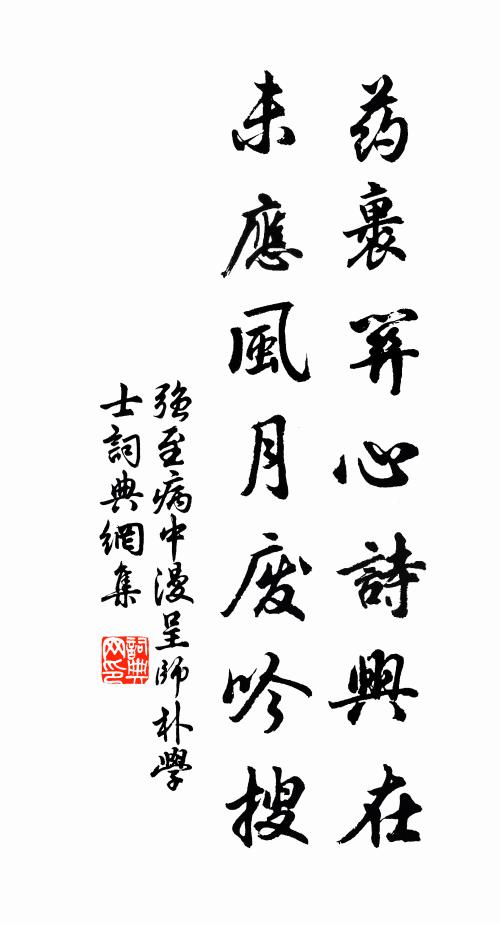 药裹관心詩興在
未應風月废吟搜
強至病中漫呈師朴學
士詞典網集
詞典网印